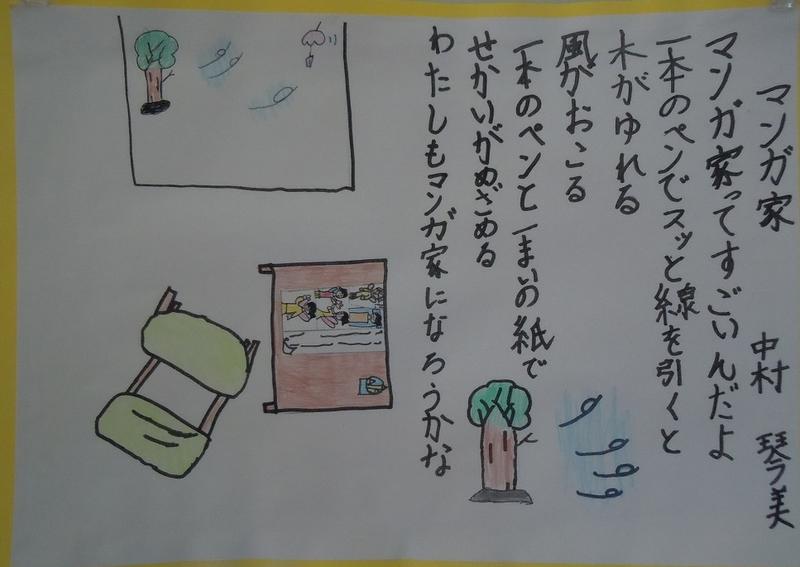 マンガ家
中村 琴美
マンガ家ってすごいんだよ
一本のペンでスッと線を引くと
木がゆれる
風がおこる
一本のペンと一まいの紙で
せかいがめざめる
わたしもマンガ家になろうかな